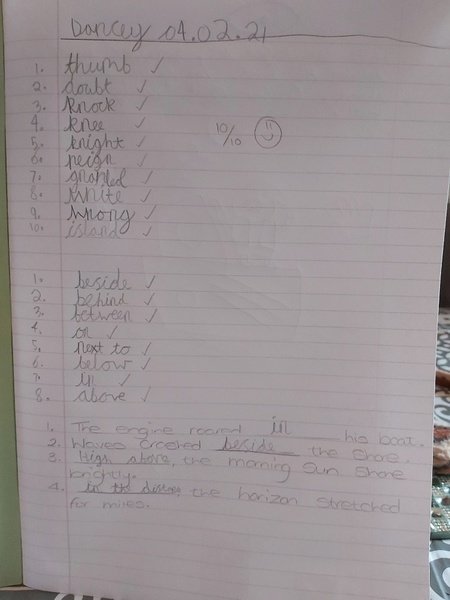 Darcey 04.02.21
1. thumb ✓
2. doubt ✓
3. knock ✓
4. knee ✓
5. knight ✓
6. reign ✓
7. gnarled ✓
8. write ✓
9. wrong ✓
10. island ✓
10/10
1. beside ✓
2. behind ✓
3. between ✓
4. on ✓
5. next to ✓
6. below ✓
7. in ✓
8. above ✓
1. The engine roared in his boat.
2. Waves crashed beside the shore.
3. High above, the morning sun shone
brightly.
4. in the the horizon stretched
for miles.